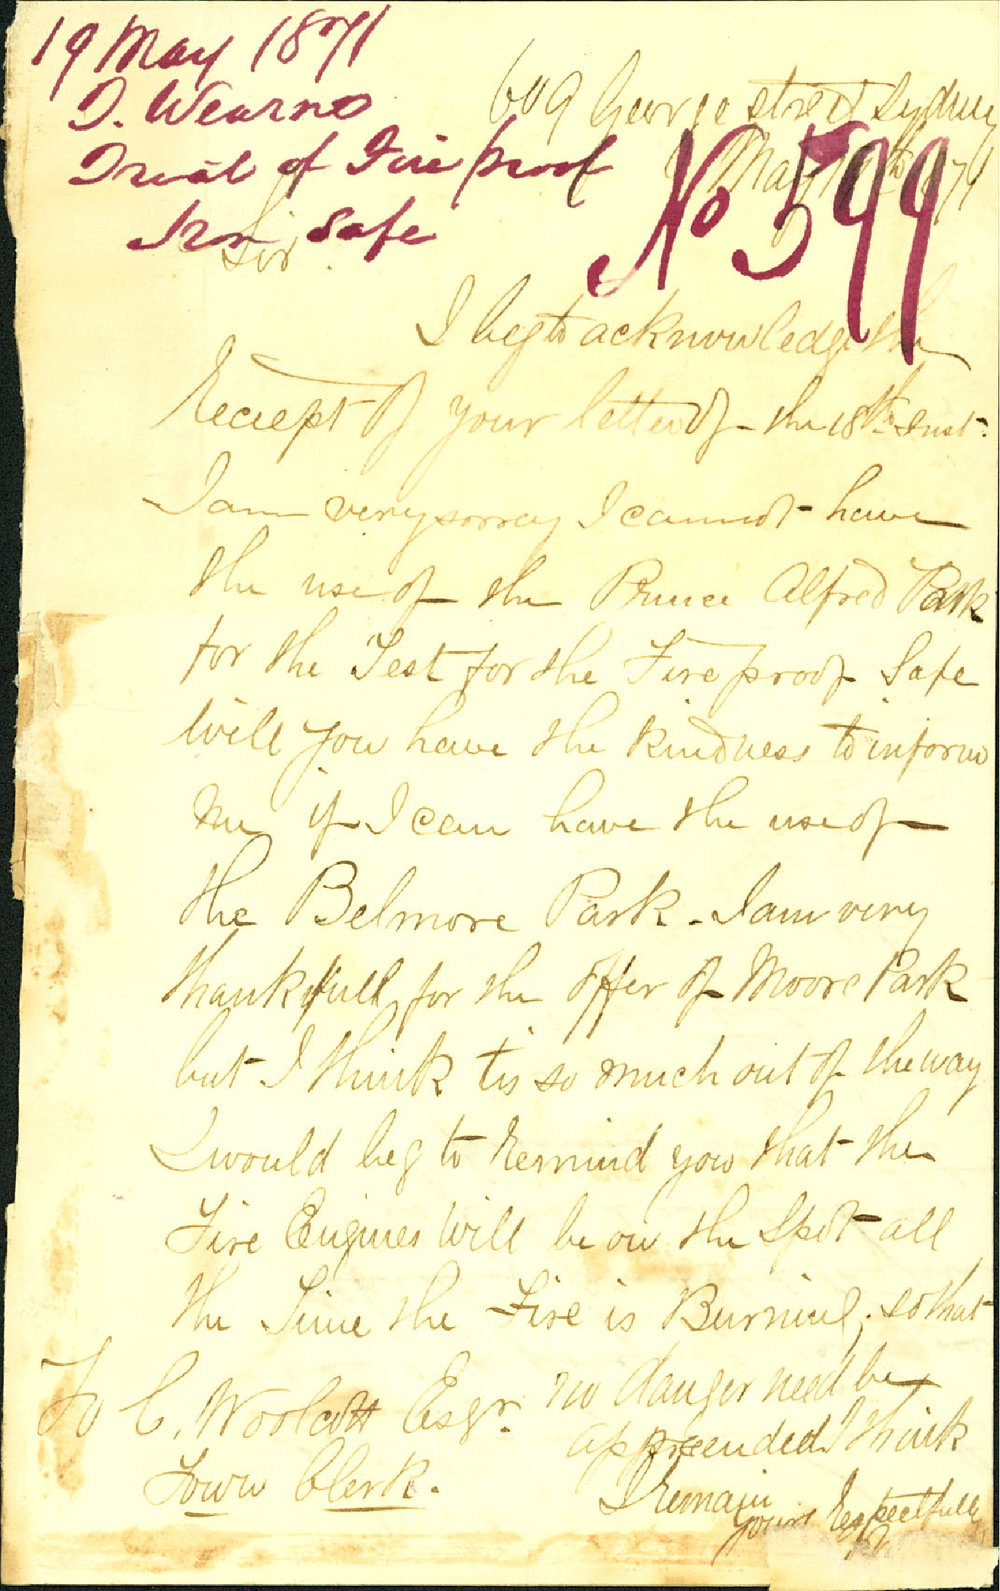 19 May 1871
T. Wearne
Trial of Fire proof
Iron Safe
No 599
609 George street Sydney
May 1871
Sir
I beg to acknowledge the
Reciept of your letter of the 18th Inst.
I am very sorrey I cannot have
the use of the Prince Alfred Park
for the Test for the Fireproof Safe
Will you have the kindness to inform
me if I can have the use of
the Belmore Park - I am very
thankfull for the offer of Moore Park
but I think tis so much out of the way
I would beg to Remind you that the
Fire Engines Will be on the Spot all
the Time the Fire is Burning, so that
no danger need be
appreended I think
I Remain
yours Respectfully
To C. Woolcott Esqr.
Town Clerk.